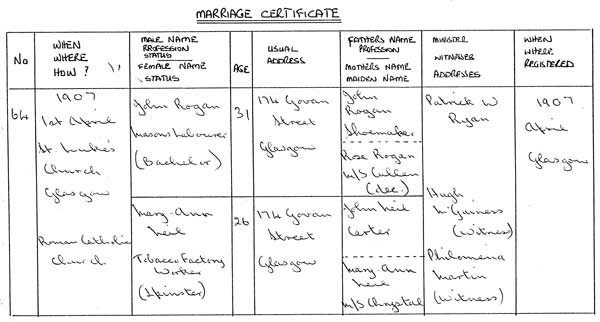 MARRIAGE CERTIFICATE
No
WHEN
WHERE
HOW?
MALE NAME
PROFESSION
STATUS
FEMALE NAME
STATUS
AGE
USUAL
ADDRESS
FATHERS NAME
PROFESSION
MOTHERS NAME
MAIDEN NAME
MINISTER
WITNESSES
ADDRESSES
WHEN
WHERE
REGISTERED
64
1907
1st April
St Luke's
Church
Glasgow
Roman Catholic
Church
John Rogan
Masons Labourer
(Bachelor)
31
174 Govan
Street
Glasgow
John
Rogan
Shoemaker
Rose Rogan
M/S Cullen
(dec.)
Mary-Ann
Neil
Tobacco Factory
Worker
(Spinster)
26
174 Govan
Street
Glasgow
John Neil
Carter
Mary-Ann
Neil
M/S Chrystal
Patrick W
Ryan
Hugh
McGuiness
(Witness)
Philomena
Martin
(Witness)
1907
April
Glasgow